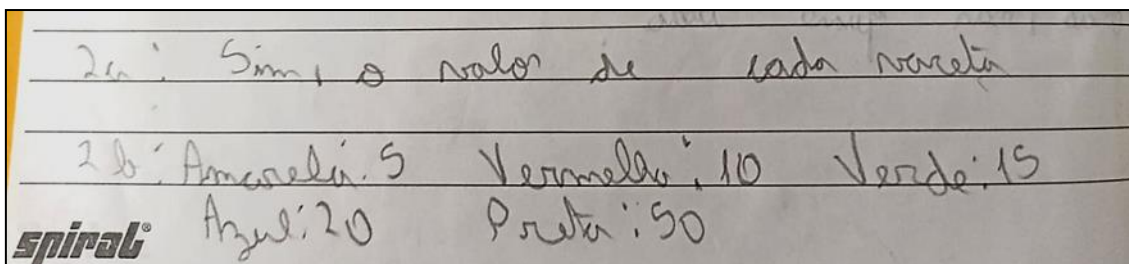 2a: Sim, o valor de cada vareta
2b: Amarela: 5 Vermelha: 10 Verde: 15
Azul: 20 Preta: 50
spiral®